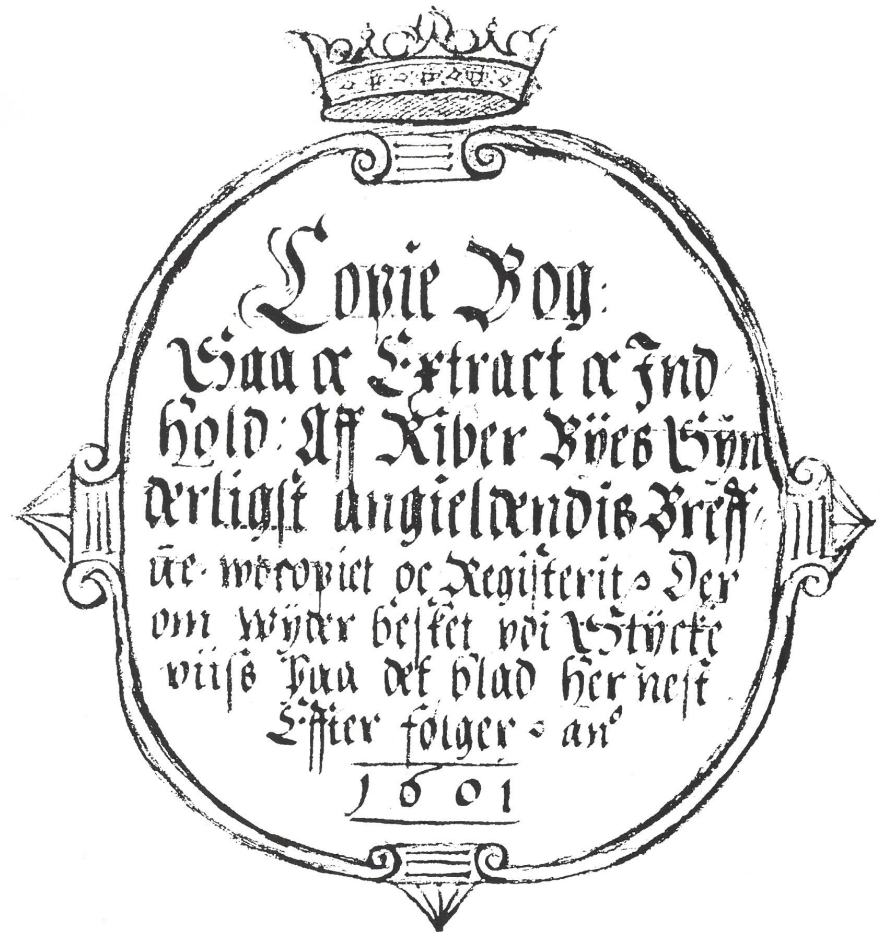 Copie Bog:
Paa de Extract de Ind
hold: Aff Riber Bÿes Sÿn
derligst angieldendis Breff
ue. wdcopiet oc Registerit, Der
om wÿder besket vdi Stÿcke
viiss Paa det blad her nest
Effter folger, an°
1601